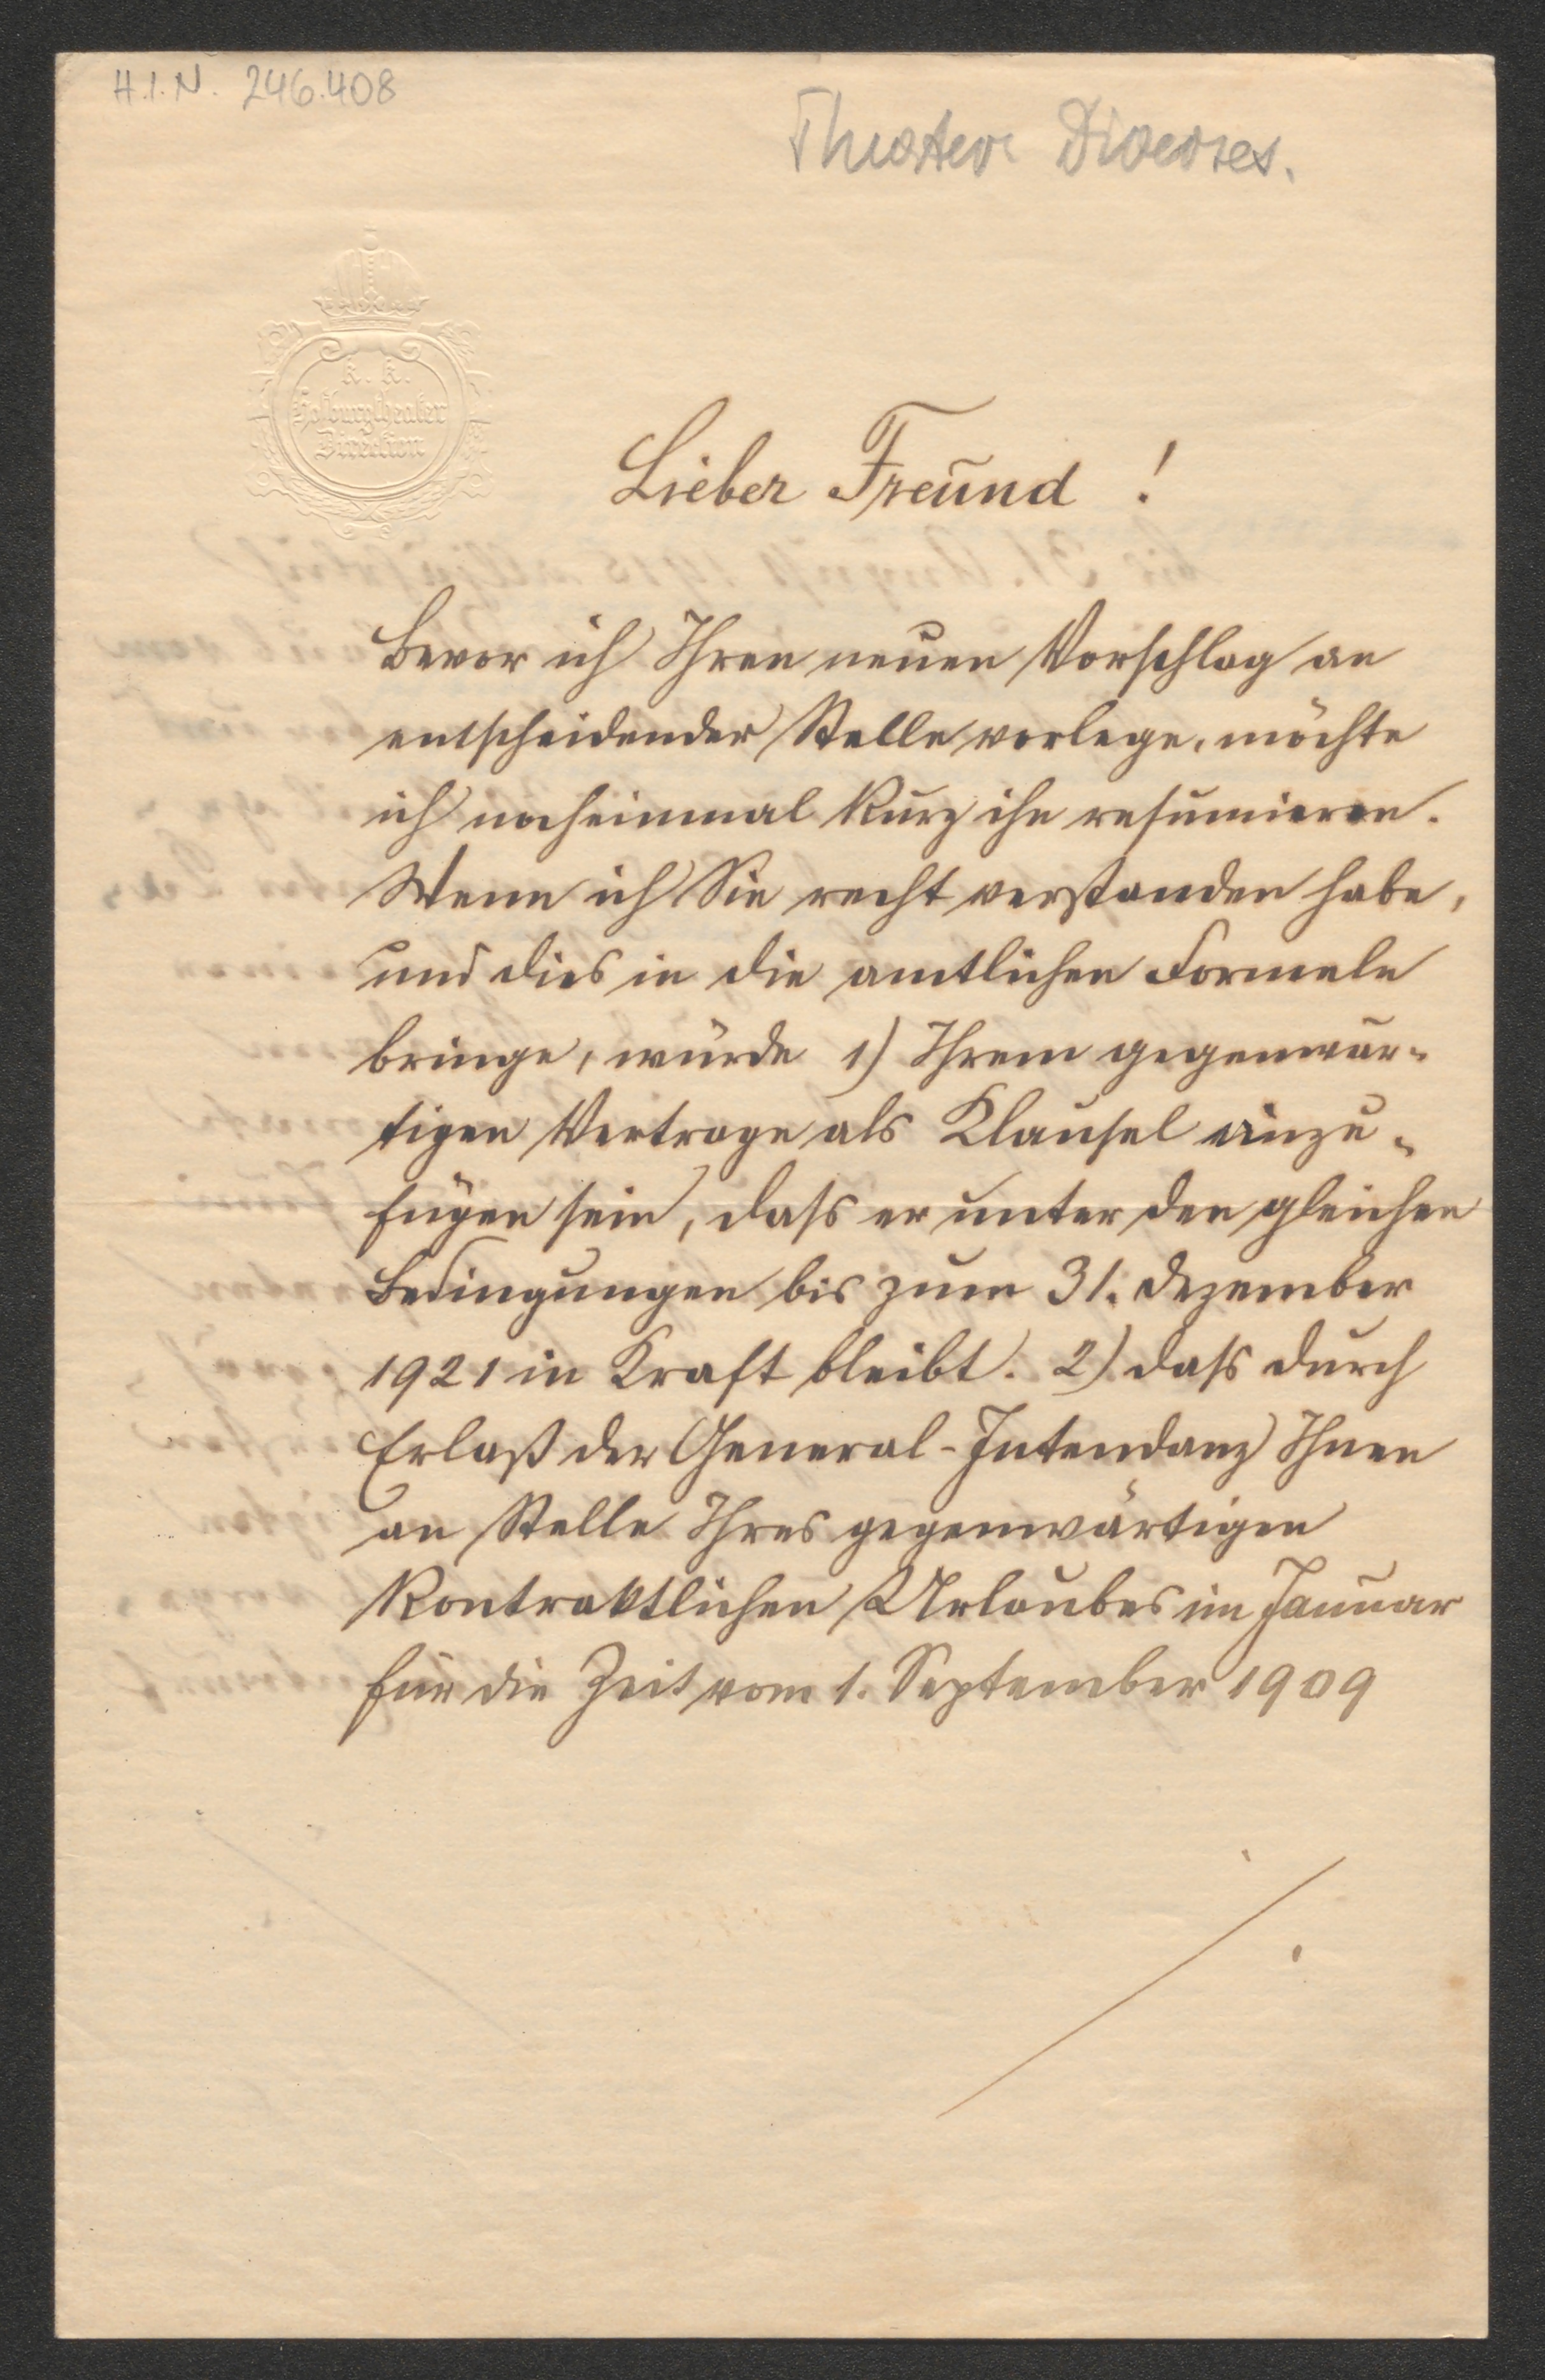 H.I.N. 246.408
Theater Diverses.
K. K.
Hofburgtheater
Direction
Lieber Freund !
Bevor ich Ihren neuen Vorschlag an
entscheidender Stelle vorlege, möchte
ich nocheinmal kurz ihn resumieren.
Wenn ich Sie recht verstanden habe,
und dies in die amtlichen Formeln
bringe, würde 1) Ihrem gegenwär-
tigen Vertrage als Klausel einzu-
fügen sein, dass er unter den gleichen
Bedingungen bis zum 31. Dezember
1921 in Kraft bleibt. 2) dass durch
Erlaß der General-Intendanz Ihnen
an Stelle Ihres gegenwärtigen
kontraktlichen Urlaubes im Januar
für die Zeit vom 1. September 1909
./.